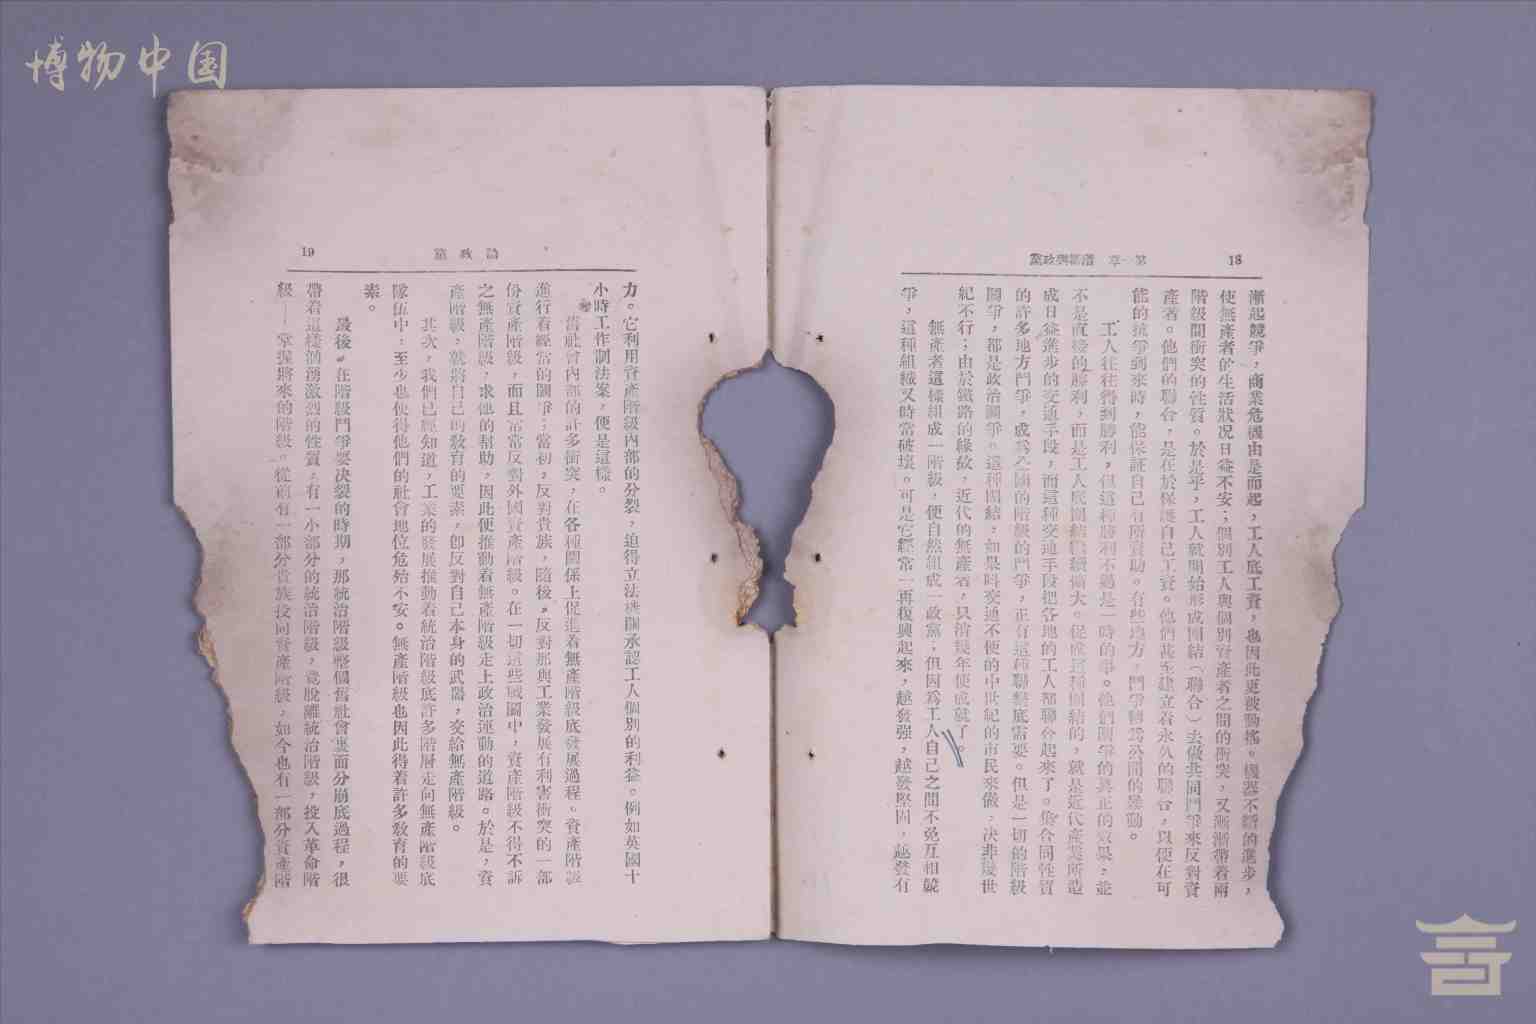 博物中国
18
第一章 階級與政黨
漸起競爭，商業危機由是而起，工人底工資，也因此更被動搖。機器不斷的進步，
使無產者的生活狀況日益不安；個別工人與個別資產者之間的衝突，又漸漸帶着兩
階級間衝突的性質。於是乎，工人就開始形成團結（聯合）去做共同鬥爭來反對資
產者。他們的聯合，是在於保護自己工資。他們甚至建立着永久的聯合，以便在可
能的抗爭到來時，能保証自己有所資助。有些地方，鬥爭轉爲公開的暴動。
工人往往得到勝利，但這種勝利不過是一時的事。他們鬥爭的真正的效果，並
不是直接的勝利，而是工人底團結繼續擴大。促成這種團結的，就是近代產業所造
成日益進步的交通手段，而這種交通手段把各地的工人都聯合起來了。集合同性質
的許多地方鬥爭，成爲全國的階級的鬥爭，正有這種聯繫底需要。但是一切的階級
鬥爭，都是政治鬥爭。這種團結，如果叫交通不便的中世紀的市民來做，決非幾世
紀不行；由於鐵路的緣故，近代的無產者，只消幾年便成就了。
無產者這樣組成一階級，便自然組成一政黨；但因爲工人自己之間不免互相競
爭，這種組織又時常破壞。可是它經常一再復興起來，越發强，越發堅固，越發有
論政黨
19
力。它利用資產階級內部的分裂，迫得立法機關承認工人個別的利益。例如英國十
小時工作制法案，便是這樣。
舊社會內部的許多衝突，在各種關係上促進着無產階級底發展過程。資產階級
進行着經常的鬥爭；當初，反對貴族，隨後，反對那與工業發展有利害衝突的一部
份資產階級，而且常常反對外國資產階級。在一切這些戰鬥中，資產階級不得不訴
之無產階級，求他的幫助，因此便推動着無產階級走上政治運動的道路。於是，資
產階級，就將自己的教育的要素，卽反對自己本身的武器，交給無產階級。
其次，我們已經知道，工業的發展推動着統治階級底許多階層走向無產階級底
隊伍中，至少也使得他們的社會地位危殆不安。無產階級也因此得着許多教育的要
素。
最後，在階級鬥爭要決裂的時期，那統治階級整個舊社會裏面分崩底過程，很
帶着這樣洶湧激烈的性質，有一小部分的統治階級，竟脫離統治階級，投入革命階
級——掌握將來的階級。從前有一部分貴族投向資產階級，如今也有一部分資產階